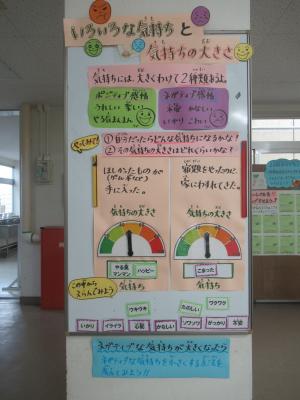 いろいろな気持ちと
気持ちの大きさ
気持ちには、大きくわけて2種類あるよ
ポジティブ感情
うれしい 楽しい
やる気まんまん
ネガティブ感情
不安 かなしい
いかり こわい
やってみて!
①自分だったらどんな気持ちになるかな?
②その気持ちの大きさはどれくらいかな?
ほしかったものが
手に入った。
宿題をやったのに、
家にわすれてきた。
気持ちの大きさ
気持ちの大きさ
やる気マンマン
ハッピー
こまった
気持ち
気持ち
この中からえらんでみよう
ウキウキ
たのしい
ワクワク
いかり
イライラ
心配
かなしい
ソワソワ
がっかり
不安
ネガティブな気持ちが大きくなったら
ネガティブな気持ちを小さくする方法を